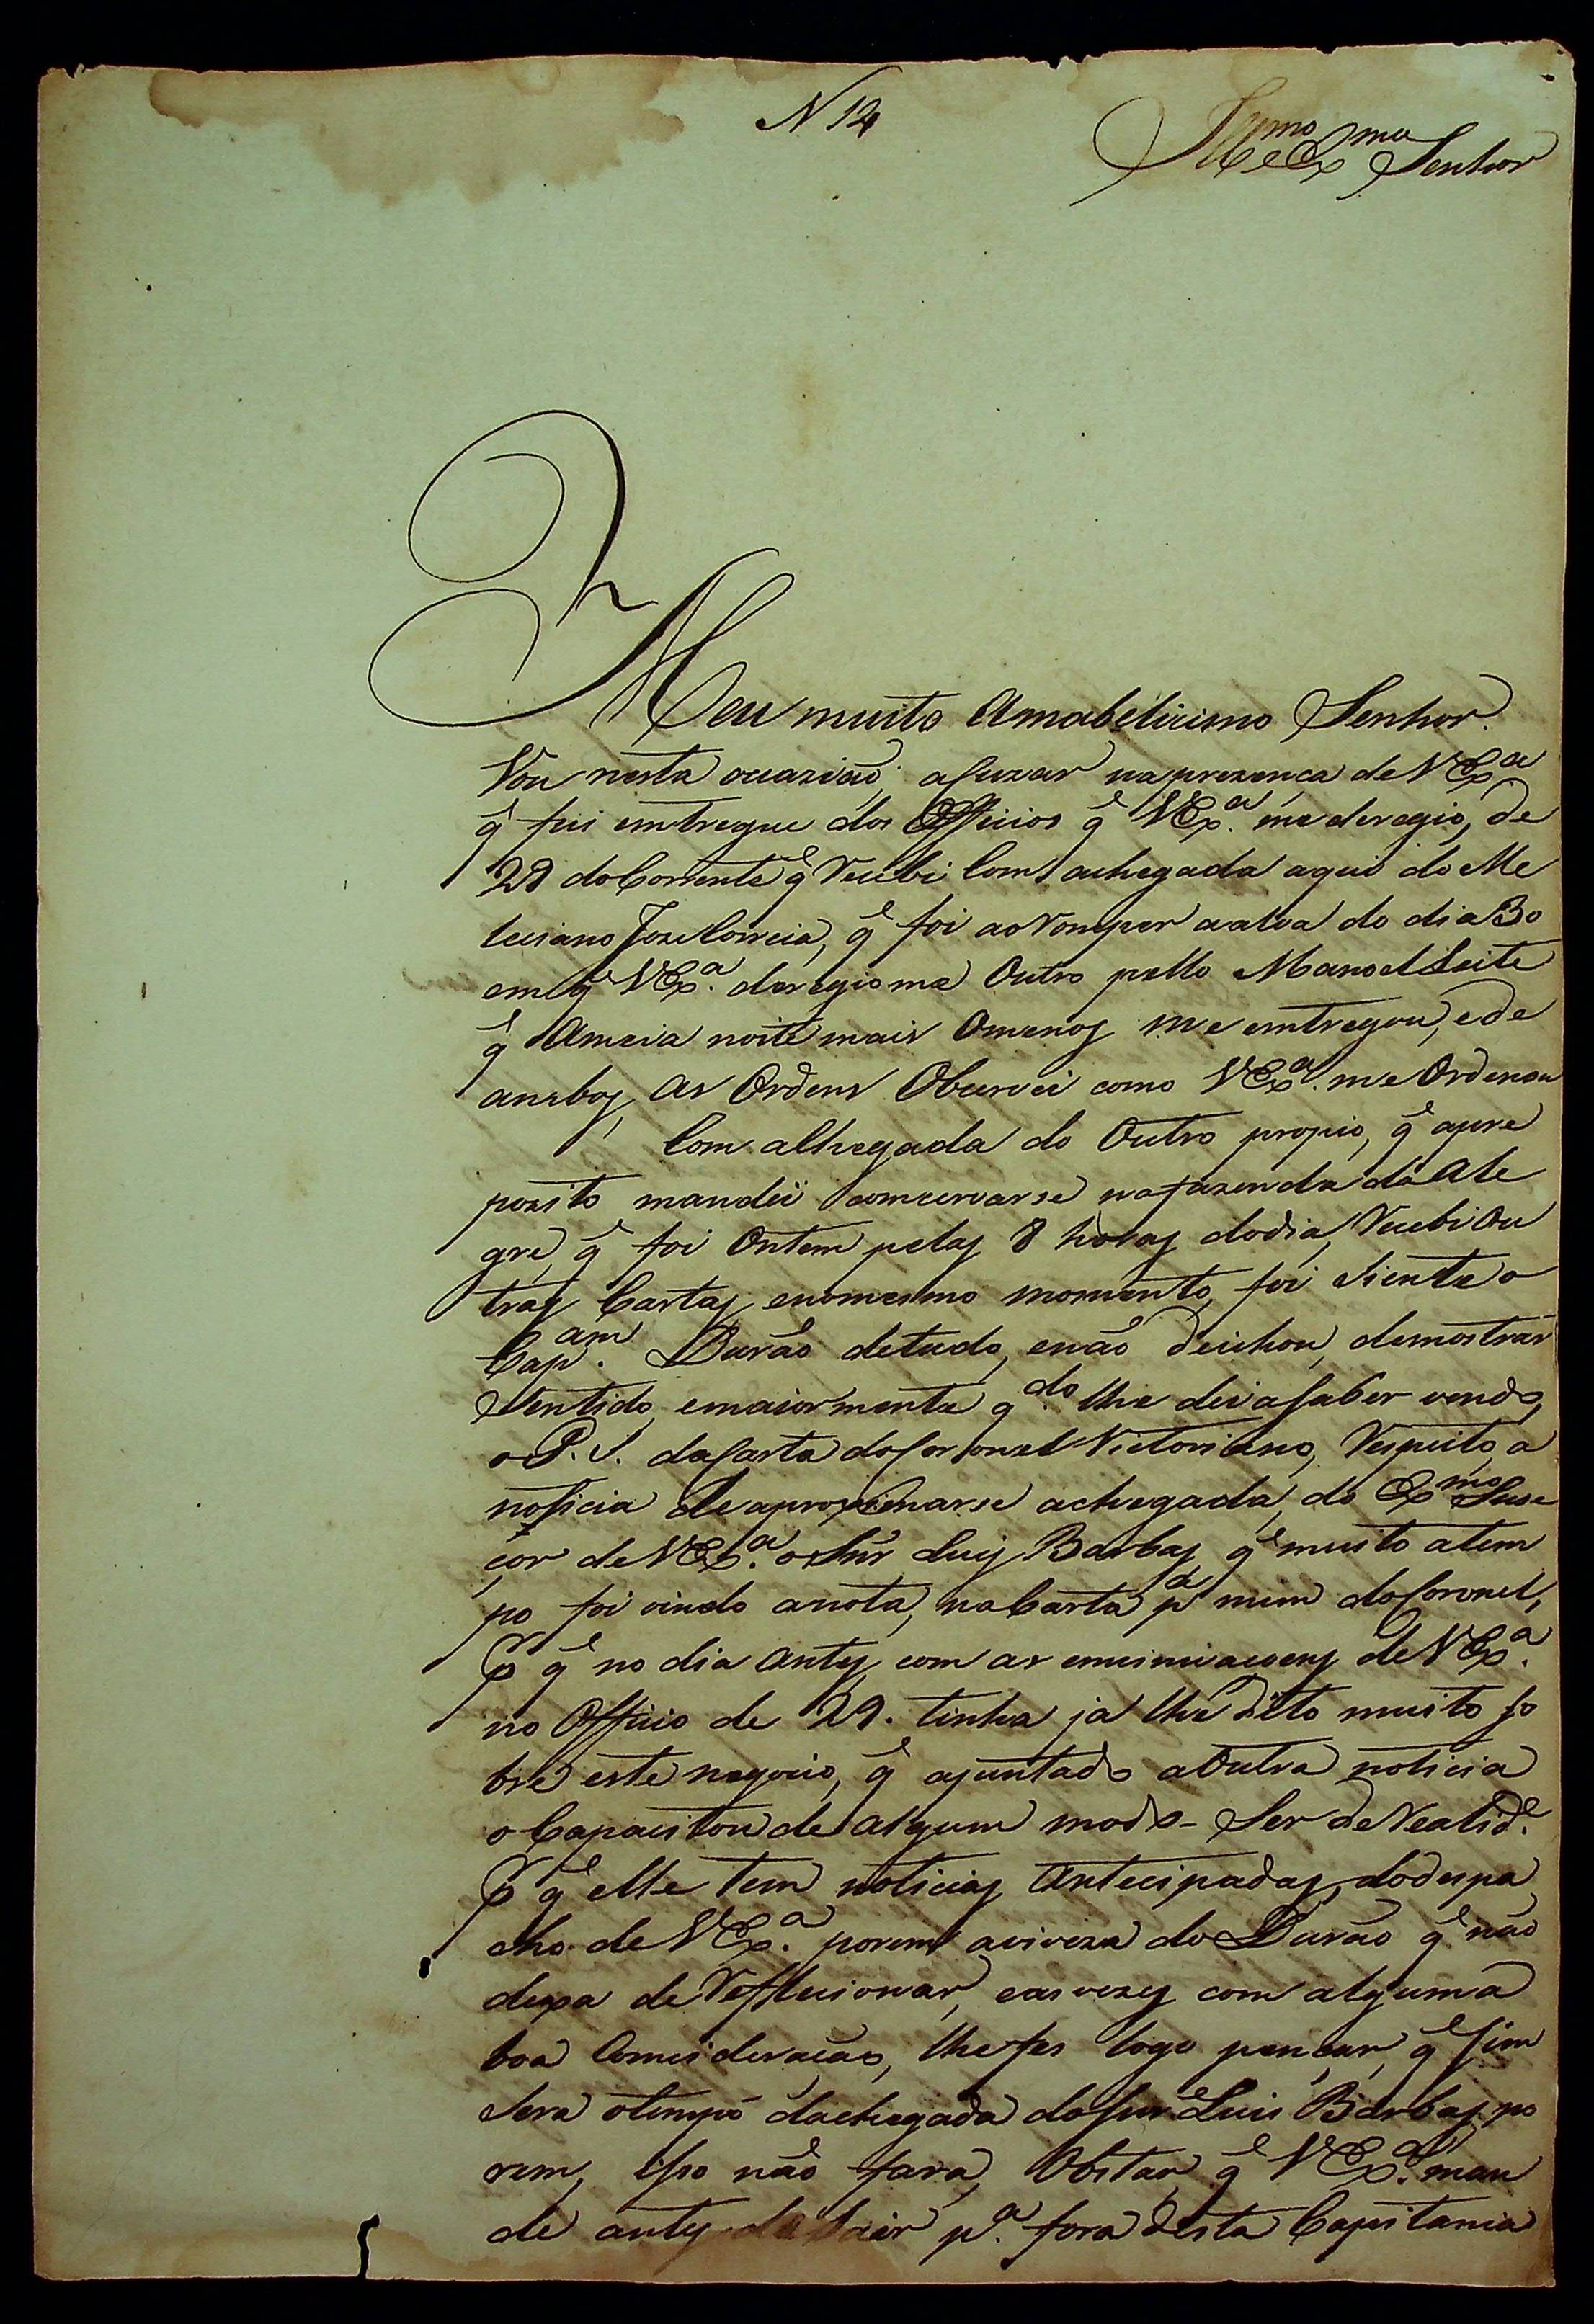 N 14
Illmo e Exmo Senhor
Meu muito Amabelicimo Senhor.
Vou nesta ocazião, acuzar na prezença de V Exa
q̃ fui emtregue dos Officios q̃ V Exa. me deregio, de
29 do Corrente q̃ Recebi Com achegada aqui do Me
leciano Joze Correia, q̃ foi ao Romper aalva do dia 30
em q̃ V Exa. deregiome Outro pello Manoel Leite
q̃ Ameia noite mais Omenos me emtregou, ede
anrbos, as Ordens Obcervei como V Exa. me Ordenou
Com achegada do Outro propio, q̃ apre
pozito mandei comcervarse nafazenda da Ale
gre, q̃ foi Ontem pelas 8 horas dodia, Recebi Ou
tras Cartas, enomesmo momento, foi siente o
Capam. Durão detudo, enão deichou, demostrar
Sentido, emaiormente qdo. lhe dei asaber vendo,
o P. S. daCarta doCoronel Victoriano, Respeito, a
noticia de aproxhimarse achegada, do Exmo Suse
çor de V Exa. o Snr Luis Barbas, q̃ muito atem
po foi vindo anota, naCarta pa mim doCoronel,
P q̃ no dia antes, com as emcinuacoens de V Exa.
no Officio de 29. tinha ja lhe dito muito so
bre este negocio, q̃ ajuntado aOutra noticia
o Capacitou de algum modo - Ser de Realide.
P q̃ elle tem noticias Antecipadas, dodespa
cho de V Exa. porem aviveza do Durão q̃ não
deixa de Reflecionar, eas vezes com alguma
boa Comcideração, lhe fes logo pençar, q̃ sim
Sera otempo dachegada do Snr Luis Barbas, po
rem, isso não fara, Obstar, q̃ V Exa. man
de antes de Sair pa. fora desta Capitania